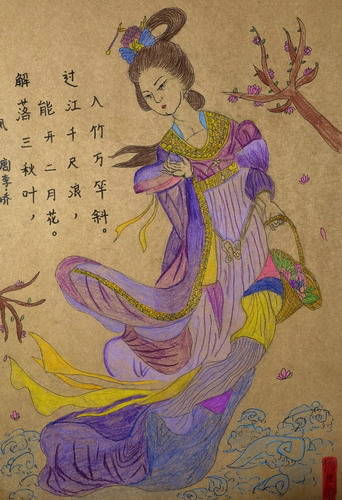 风
唐李峤
解落三秋叶，
能开二月花。
过江千尺浪，
入竹万竿斜。